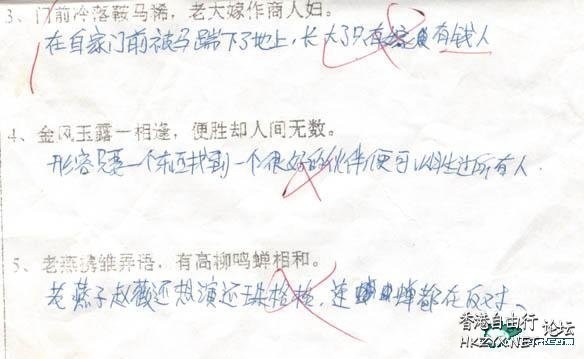 3、门前冷落鞍马稀，老大嫁作商人妇。
在自家门前被马踹下了地上，长大了只有有钱人
4、金风玉露一相逢，便胜却人间无数。
形容只要一个东西找到一个很好的伙伴便可以胜过所有人.
5、老燕携雏弄语，有高柳鸣蝉相和。
老燕子赵薇还想演还珠格格，连蝉都在反对。
香港自由行 论坛